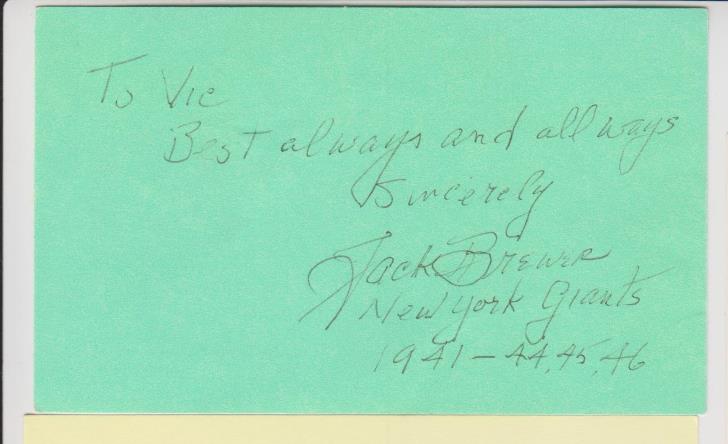 To Vic
Best always and all ways
Sincerely
Jack Brewer
New York Giants
1941-44,45,46